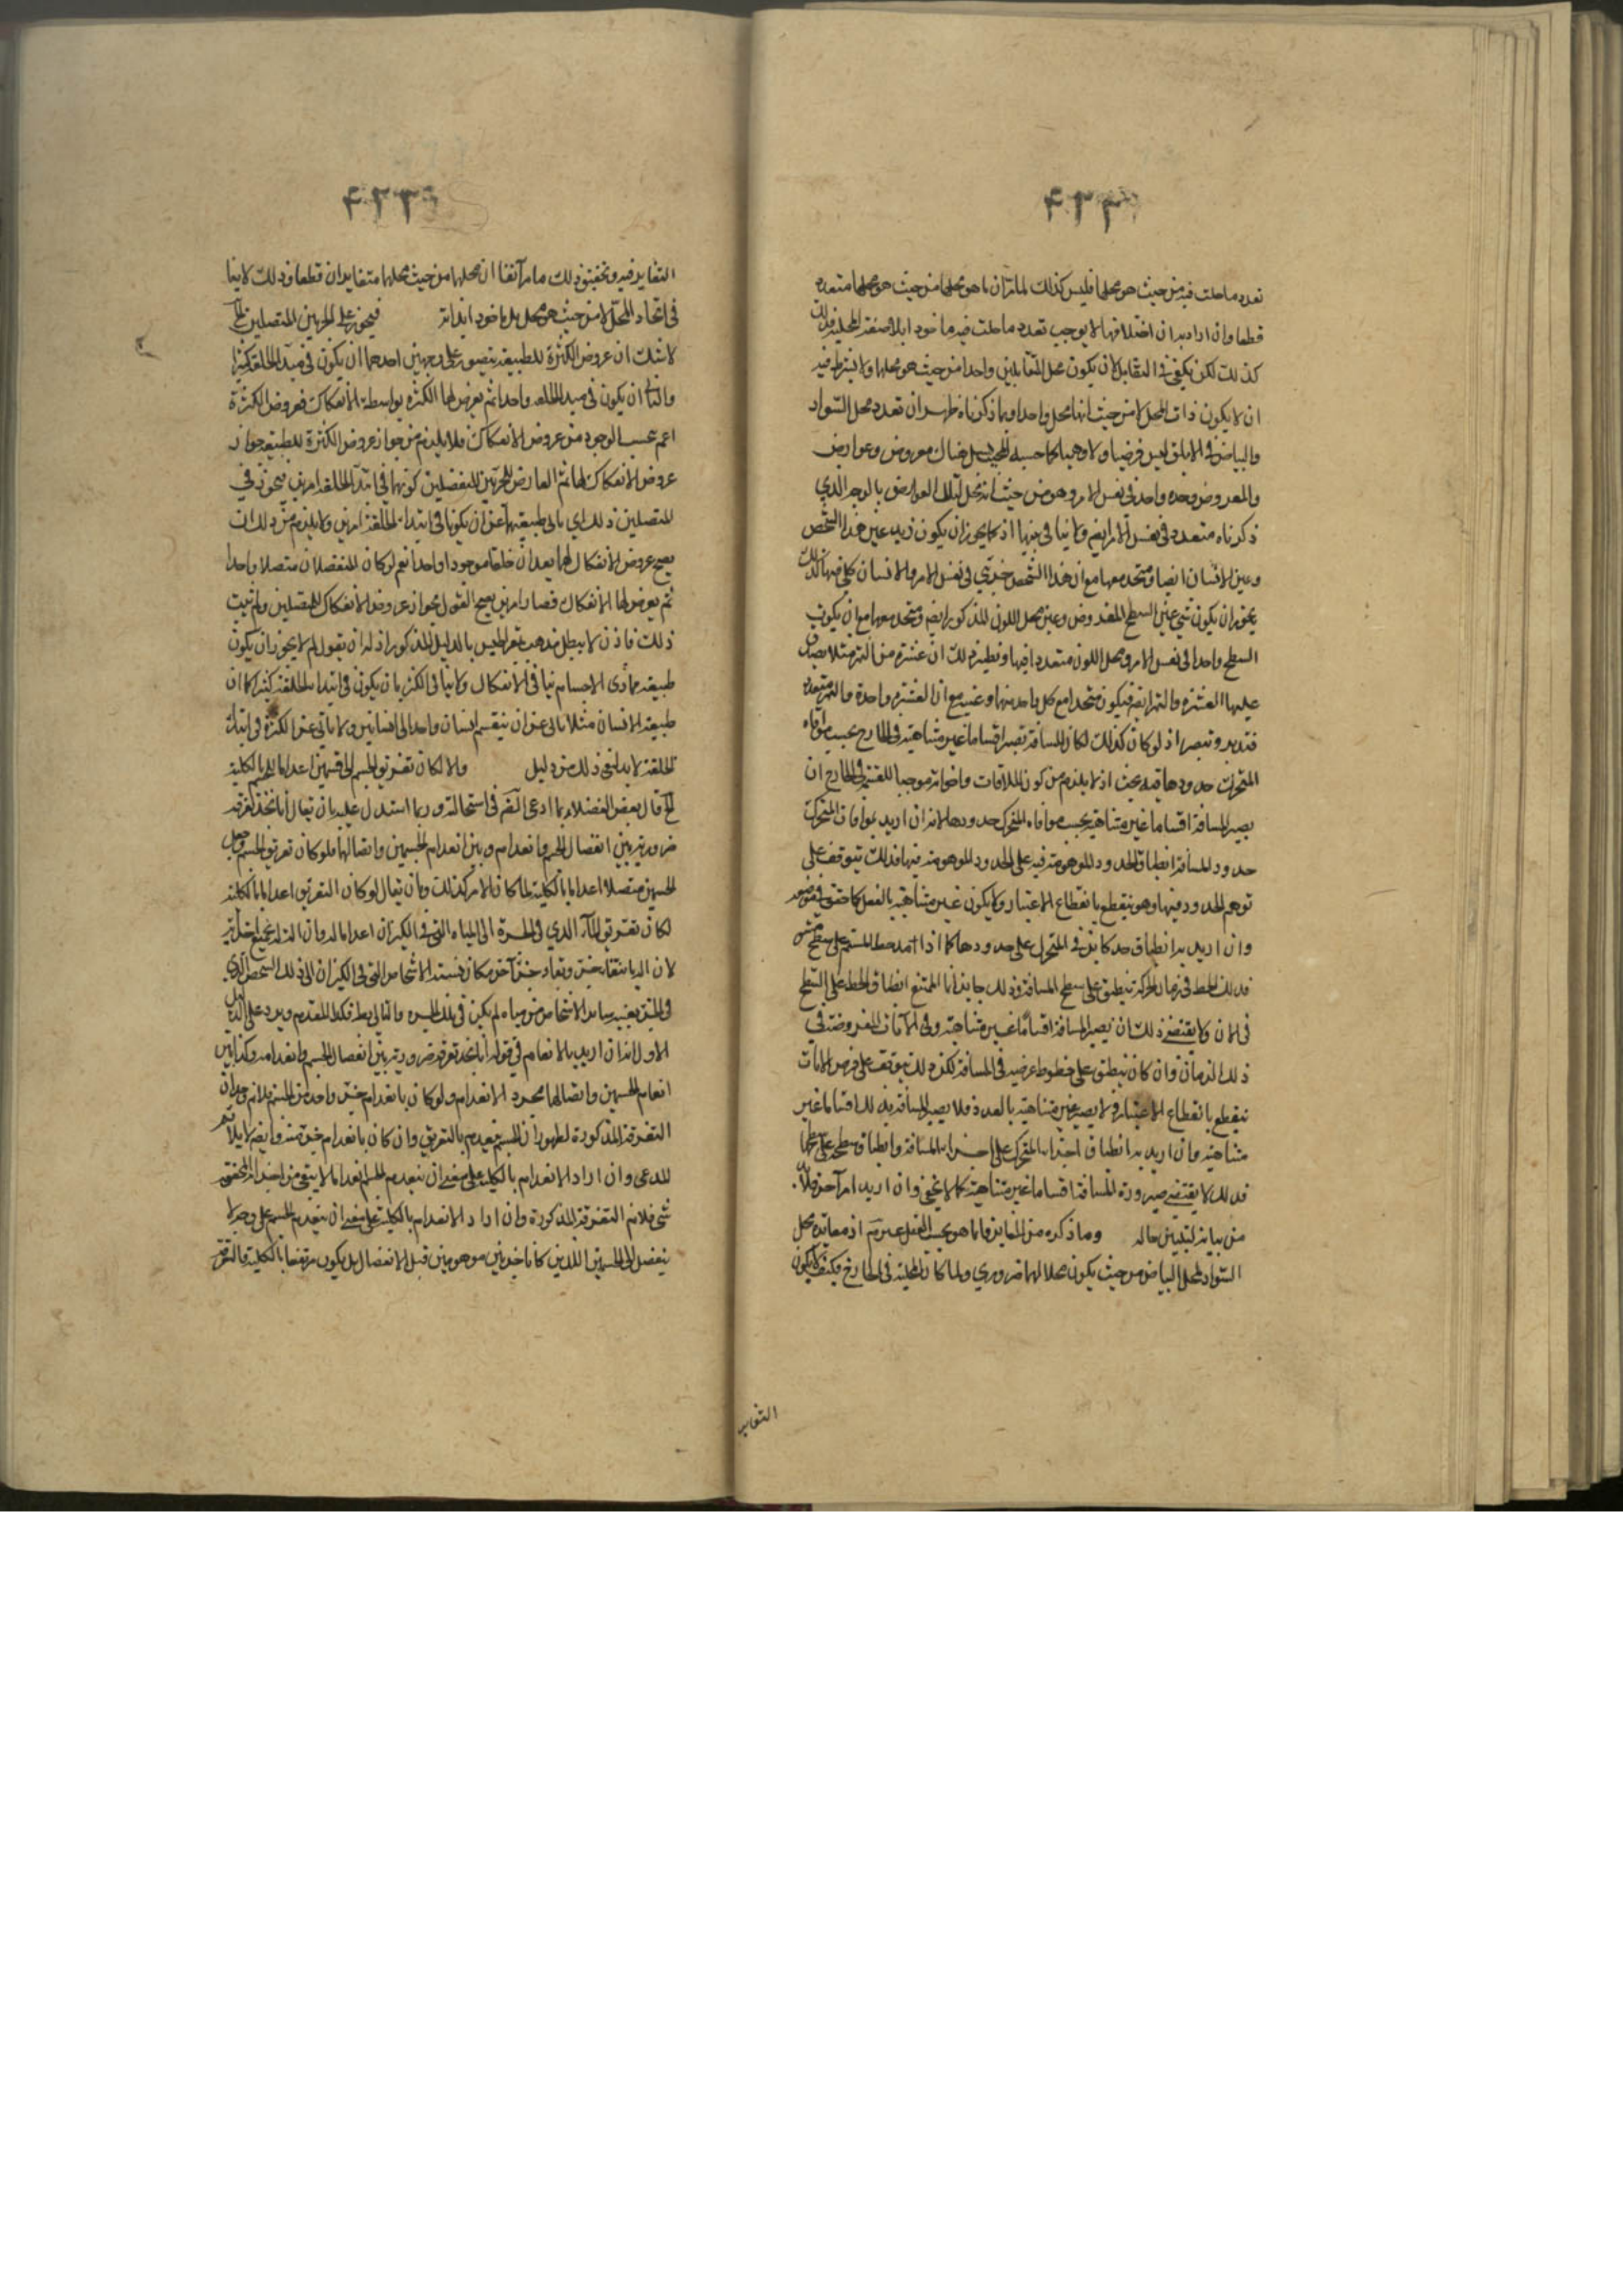 تعدد ما حلت فيه من حيث هو محلها فليس كذلك لما مر آن ما هو محلها من حيث هو محلها متعدد
قطعا وان اراد به ان اختلافها لا يوجب تعدد ما حلت فيه ماخوذا بلا صفة المحلية فذلك
كذلك لكن يكفي في التقابل لان يكون محل المتقابلين واحدا من حيث هو محلها ولا يشترط فيه
ان لا يكون ذات المحل لا من حيث انها محل واحدا وبما ذكرناه ظهر ان تعدد محل السواد
والبياض في الابلق ليس فرضيا ولا وهميا كما حسبه المجيب بل هناك معروض وعوارض
والمعروض وحده واحد في نفس الامر وهو من حيث انه محل لتلك العوارض بالوجه الذي
ذكرناه متعدد في نفس الامر ايضا ولا تنافي بينهما اذ كما يجوز ان يكون زيد عين هذا الشخص
وعين الانسان ايضا ومتحد معهما مع ان هذا الشخص جزئي في نفس الامر والانسان كلي فيها كذلك
يجوز ان يكون شي عين السطح المفروض وعين محل اللون المذكور ايضا ومتحد معهما مع ان يكون
السطح واحدا في نفس الامر ومحل اللون متعددا فيها ونظير ذلك ان عشرة من التمر مثلا يصدق
عليها العشرة والتمر ايضا فيكون متحدا مع كل واحد منهما وعينه مع ان العشرة واحدة والتمر متعدد
فتدبر وتبصر اذ لو كان كذلك لكان المسافة تصير اقساما غير متناهية في الخارج بحسب موافاة
المتحرك حدودها فيه بحث اذ لا يلزم من كون الملاقات واخواته موجبا للقسمة في الخارج ان
يصير المسافة اقساما غير متناهية بحسب موافاة المتحرك حدودها لانه ان اريد بموافات المتحرك
حدود المسافة انطباق الحدود الموهومة فيه على الحدود الموهومة فيها فذلك يتوقف على
توهم الحدود فيها وهو ينقطع بانقطاع الاعتبار ولا يكون غير متناهية بالفعل كما حقق في موضعه
وان اريد به انطباق حد كاين في المتحرك على حدودها كما اذا امتد خط المستقيم على سطح مستو
فذلك الخط في زمان الحركة ينطبق على سطح المسافة وذلك جايز انما الممتنع انطباق الخط على السطح
في الان ولا يقتضي ذلك ان يصير المسافة اقساما غير متناهية وفي الآنات المفروضة في
ذلك الزمان وان كان ينطبق على خطوط عرضيه في المسافة لكن ذلك يتوقف على فرض الانات
ينقطع بانقطاع الاعتبار ولا يصير غير متناهية بالعدد فلا يصير المسافة بذلك اقساما غير
متناهية وان اريد به انطباق اجزاء المتحرك على اجزاء المسافة وانطباق سطحه على سطحها
فذلك لا يقتضي صيرورة المسافة اقساما غير متناهية كما لا يخفى وان اريد امر آخر فلا بد
من بيانه ليتبين حاله وما ذكره من التمايز فانما هو بحسب العقل غير مم اذ مغايرة محل
السواد لمحل البياض من حيث يكون محلا لهما ضروري ولما كان المحلية في الخارج فكيف لا يكون
التغاير
التغاير فيه وتحقيق ذلك ما مر آنفا ان محلها من حيث محلها متغايران قطعا وذلك لا ينا
في اتحاد المحل لا من حيث هو محل بل ماخوذا بذاته فيجوز على الجزئين المتصلين الخ
لا شك ان عروض الكثرة للطبيعة يتصور على وجهين احدهما ان يكون في مبدأ الخلقة كثيرا
والثاني ان يكون في مبدا الخلقة واحدا ثم يعرض لها الكثرة بواسطة الانفكاك فعروض الكثرة
اعم بحسب الوجود من عروض الانفكاك فلا يلزم من جواز عروض الكثرة للطبيعة جواز
عروض الانفكاك لها ثم العارض للجزئين المنفصلين كونهما في ابتداء الخلقة امرين فيجوز في
المتصلين ذلك اي يابى طبيعتهما عن ان يكونا في ابتداء الخلقة امرين ولا يلزم من ذلك ان
يصح عروض الانفكاك لهما بعد ان خلقا موجودا واحدا نعم لو كان المنفصلان متصلا واحدا
ثم يعرض لها الانفكاك فصار امرين يصح القول بجواز عروض الانفكاك للمتصلين ولم يثبت
ذلك فاذن لا يبطل مذهب ذيمقراطيس بالدليل المذكور اذ له ان يقول لم لا يجوز ان يكون
طبيعة مادى الاجسام ينافي الانفكاك ولا ينافي الكثرة بان يكون في ابتداء الخلقة كثيرا كما ان
طبيعة الانسان مثلا يابى عن ان ينقسم انسان واحد الى انسانين ولا يابى عن الكثرة في ابتداء
الخلقة لا بد لنفي ذلك من دليل والا لكان تفريق الجسم الى قسمين اعداما له بالكلية
الخ قال بعض الفضلاء ربما ادعى البعض في استحالته وربما استدل عليه بان يقال انا نجد تفرقة
ضرورية بين انفصال الجسم وانعدامه وبين انعدام الجسمين واتصالهما فلو كان تفريق الجسم وجعل
الجسمين متصلا اعداما بالكلية لما كان الامر كذلك وبان يقال لو كان التفريق اعداما بالكلية
لكان تفريق الماء الذي في الجرة الى المياه التي في الكيزان اعداما له
لان
في
الاول انه ان اريد بالانعدام في قوله انا نجد تفرقة ضرورية بين انفصال الجسم وانعدامه وكذا بين
انعدام الجسمين واتصالهما مجرد الانعدام ولو كان بانعدام جزء واحد من الجسم فلا نم وجدان
التفرقة المذكورة لظهور ان الجسم ينعدم بالتفريق وان كان بانعدام جزء منه وايضا لا يلائم
المدعى وان اراد الانعدام بالكلية على معنى ان ينعدم الجسم انعداما لا يبقى من اجزائه المحققة
شي فلا نم التفرقة المذكورة وان اراد الانعدام بالكلية على معنى ان ينعدم الجسم على وجه لا
ينفصل الى الجسمين اللذين كانا جزئين موهومين قبل الانفصال بل يكون مرتفعا بالكلية فالتفرقة